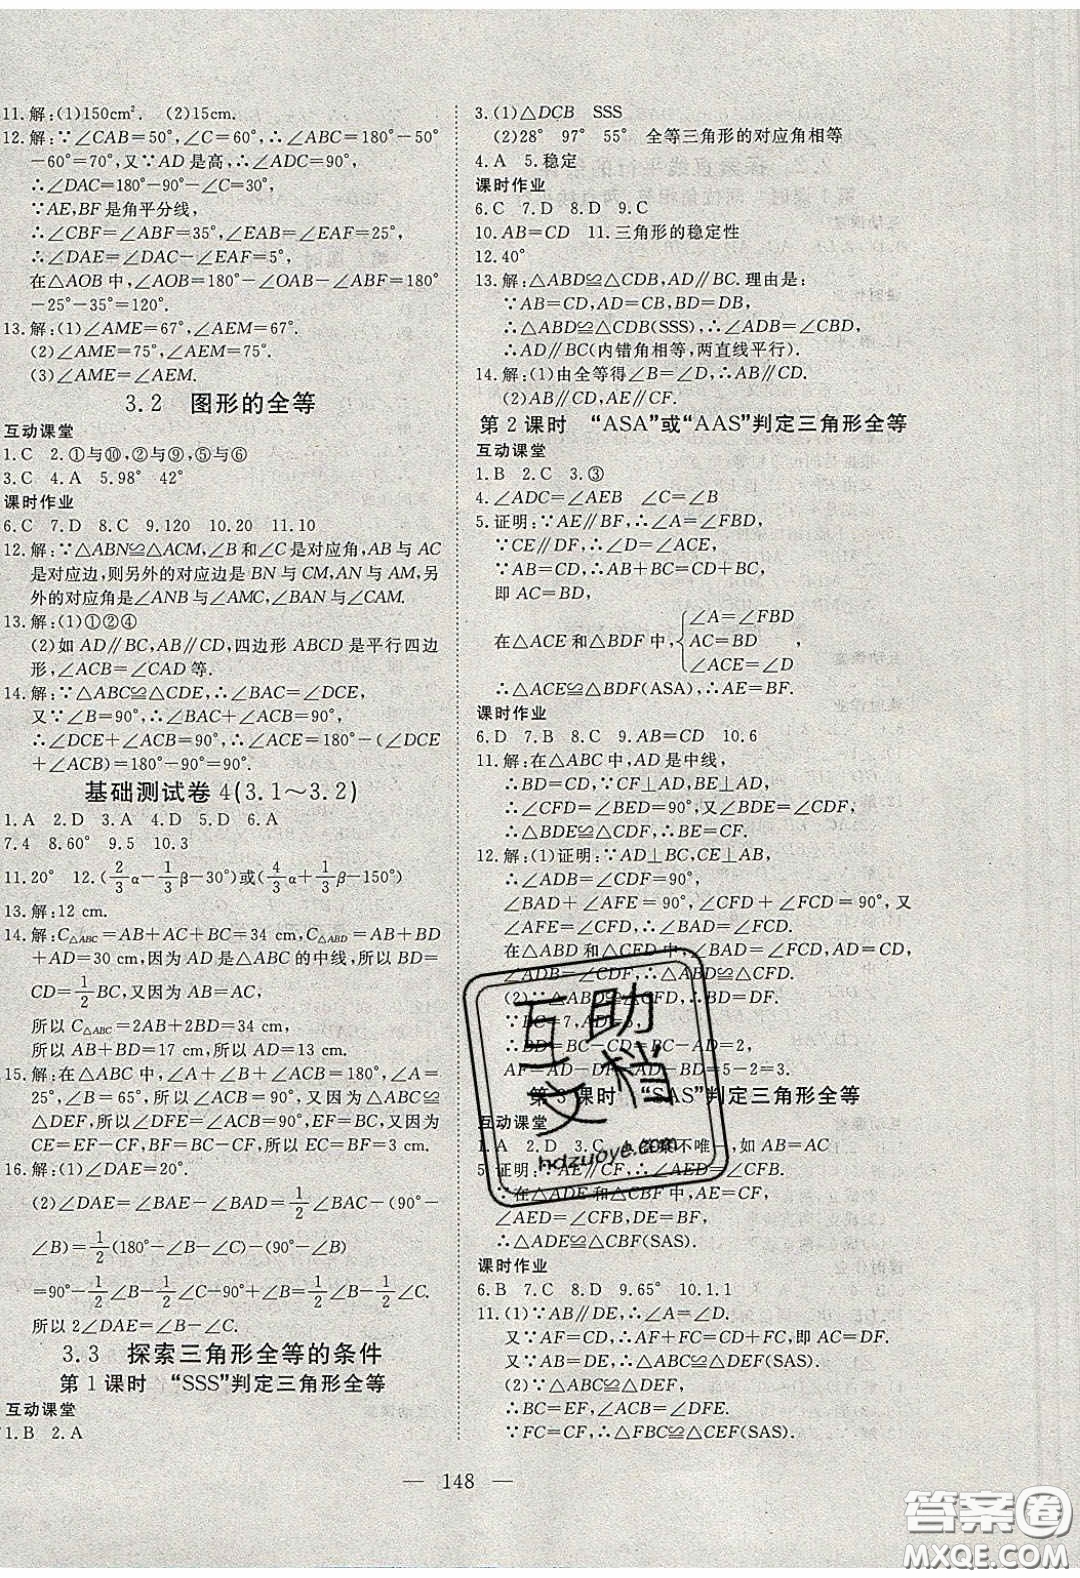 11.解:(1)150cm². (2)15cm.
12.解:∵∠CAB=50°,∠C=60°,∴∠ABC=180°-50°
-60°=70°,又∵AD是高,∴∠ADC=90°,
∴∠DAC=180°-90°-∠C=30°,
∵AE,BF是角平分线,
∴∠CBF=∠ABF=35°,∠EAB=∠EAF=25°,
∴∠DAE=∠DAC-∠EAF=5°,
在△AOB中,∠AOB=180°-∠OAB-∠ABF=180°
-25°-35°=120°.
13.解:(1)∠AME=67°,∠AEM=67°.
(2)∠AME=75°,∠AEM=75°.
(3)∠AME=∠AEM.
3.2 图形的全等
互动课堂
1.C 2.①与⑩,②与⑨,⑤与⑥
3.C 4.A 5.98° 42°
课时作业
6.C 7.D 8.C 9.120 10.20 11.10
12.解:∵△ABN≌△ACM,∠B和∠C是对应角,AB与AC
是对应边,则另外的对应边是BN与CM,AN与AM,另
外的对应角是∠ANB与∠AMC,∠BAN与∠CAM.
13.解:(1)①②④
(2)如AD∥BC,AB∥CD,四边形ABCD是平行四边
形,∠ACB=∠CAD等.
14.解:∵△ABC≌△CDE,∴∠BAC=∠DCE,
又∵∠B=90°,∴∠BAC+∠ACB=90°,
∴∠DCE+∠ACB=90°,∴∠ACE=180°-(∠DCE
+∠ACB)=180°-90°=90°.
基础测试卷4(3.1～3.2)
1.A 2.D 3.A 4.D 5.D 6.A
7.4 8.60° 9.5 10.3
11.20° 12.(2/3α-1/3β-30°)或(4/3α+1/3β-150°)
13.解:12 cm.
14.解:C△ABC=AB+AC+BC=34 cm,C△ABD=AB+BD
+AD=30 cm,因为AD是△ABC的中线,所以BD=
CD=1/2BC,又因为AB=AC,
所以C△ABC=2AB+2BD=34 cm,
所以AB+BD=17 cm,所以AD=13 cm.
15.解:在△ABC中,∠A+∠B+∠ACB=180°,∠A=
30°,∠B=65°,所以∠ACB=85°,又因为△ABC≌
△DEF,所以∠DFE=∠ACB=85°,EF=BC,所以
CE=EF-CF=BC-CF=BF=3 cm.
16.解:(1)∠DAE=20°.
(2)∠DAE=∠BAE-∠BAD=1/2∠BAC-(90°-
∠B)=1/2(180°-∠B-∠C)-(90°-∠B)
=90°-1/2∠B-1/2∠C-90°+∠B=1/2∠B-1/2∠C.
所以2∠DAE=∠B-∠C.
3.3 探索三角形全等的条件
第1课时 “SSS”判定三角形全等
互动课堂
1.B 2.A
3.(1)△DCB SSS
(2)28° 97° 55° 全等三角形的对应角相等
4.A 5.稳定
课时作业
6.C 7.D 8.D 9.C
10.AB=CD 11.三角形的稳定性
12.40°
13.解:△ABD≌△CDB,AD∥BC.理由是:
∵AB=CD,AD=BC,BD=DB,
∴△ABD≌△CDB(SSS),∴∠ADB=∠CBD,
∴AD∥BC(内错角相等,两直线平行).
14.解:(1)由全等得∠B=∠D,∴AB∥CD.
(2)AB∥CD,AE∥CF.
第2课时 “ASA”或“AAS”判定三角形全等
互动课堂
1.B 2.C 3.③
4.∠ADC=∠AEB ∠C=∠B
5.证明:∵AE∥BF,∴∠A=∠FBD,
∵CE∥DF,∴∠D=∠ACE,
∵AB=CD,∴AB+BC=CD+BC,
即AC=BD,
在△ACE和△BDF中,{∠A=∠FBD
AC=BD ,
∠ACE=∠D
∴△ACE≌△BDF(ASA),∴AE=BF.
课时作业
6.D 7.B 8.C 9.AB=CD 10.6
11.解:在△ABC中,AD是中线,
∴BD=CD,∵CF⊥AD,BE⊥AD,
∴∠CFD=∠BED=90°,又∠BDE=∠CDF,
∴△BDE≌△CDF,∴BE=CF.
12.解:(1)证明:∵AD⊥BC,CE⊥AB,
∴∠ADB=∠CDF=90°,
∠BAD+∠AFE=90°,∠CFD+∠FCD=90°,又
∠AFE=∠CFD,∴∠BAD=∠FCD,
在△ABD和△CFD中,∠BAD=∠FCD,AD=CD,
∠ADB=∠CDF,∴△ABD≌△CFD.
(2)∵△ABD≌△CFD,∴BD=DF,
∵BC=7,AD=5,
∴BD=BC-CD=BC-AD=2,
AF=AD-DF=AD-BD=5-2=3.
第3课时 “SAS”判定三角形全等
互动课堂
1.A 2.D 3.C 4.答案不唯一,如AB=AC
5.证明:∵AE∥CF,∴∠AED=∠CFB.
∵在△ADE和△CBF中,AE=CF,
∠AED=∠CFB,DE=BF,
∴△ADE≌△CBF(SAS).
课时作业
6.B 7.C 8.D 9.65° 10.1.1
11.(1)∵AB∥DE,∴∠A=∠D.
又∵AF=CD,∴AF+FC=CD+FC,即AC=DF.
又∵AB=DE,∴△ABC≌△DEF(SAS).
(2)∵△ABC≌△DEF,
∴BC=EF,∠ACB=∠DFE.
∵FC=CF,∴△FBC≌△CEF(SAS).
— 148 —
互助
文档
hdzuoye.com
答案圈
MXQE.COM